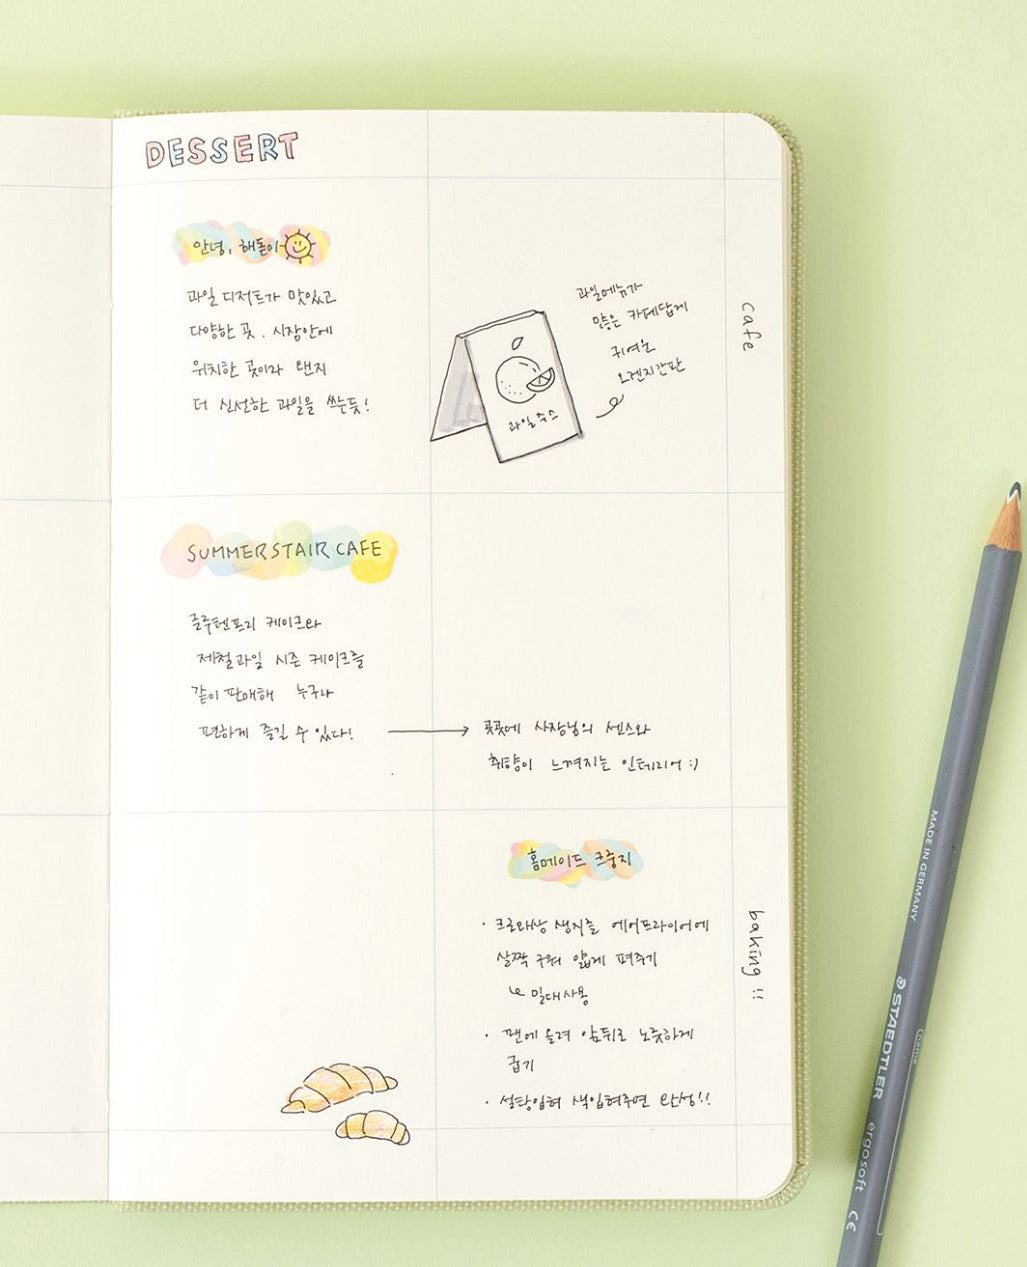 DESSERT
안녕, 해돋이
과일 디저트가 맛있고
다양한 곳. 시장안에
위치한 곳이라 왠지
더 신선한 과일을 쓰는듯!
과일주스
과일메뉴가
많은 카페답게
귀여운
오렌지간판
cafe
SUMMER STAIR CAFE
글루텐프리 케이크와
제철과일 시즌 케이크를
같이 판매해 누구나
편하게 즐길 수 있다!
곳곳에 사장님의 센스와
취향이 느껴지는 인테리어 :)
홈메이드 크룽지
· 크로와상 생지를 에어프라이어에
살짝 구워 얇게 펴주기
밀대사용
· 팬에 올려 앞뒤로 노릇하게
굽기
· 설탕입혀 색입혀주면 완성!!
baking!!
MADE IN GERMANY
STAEDTLER
ergosoft
CE